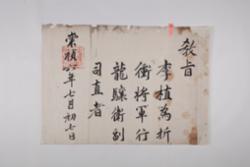 敎旨
李植爲折
衝將軍行
龍驤衛副
司直者
崇禎年七月初七日